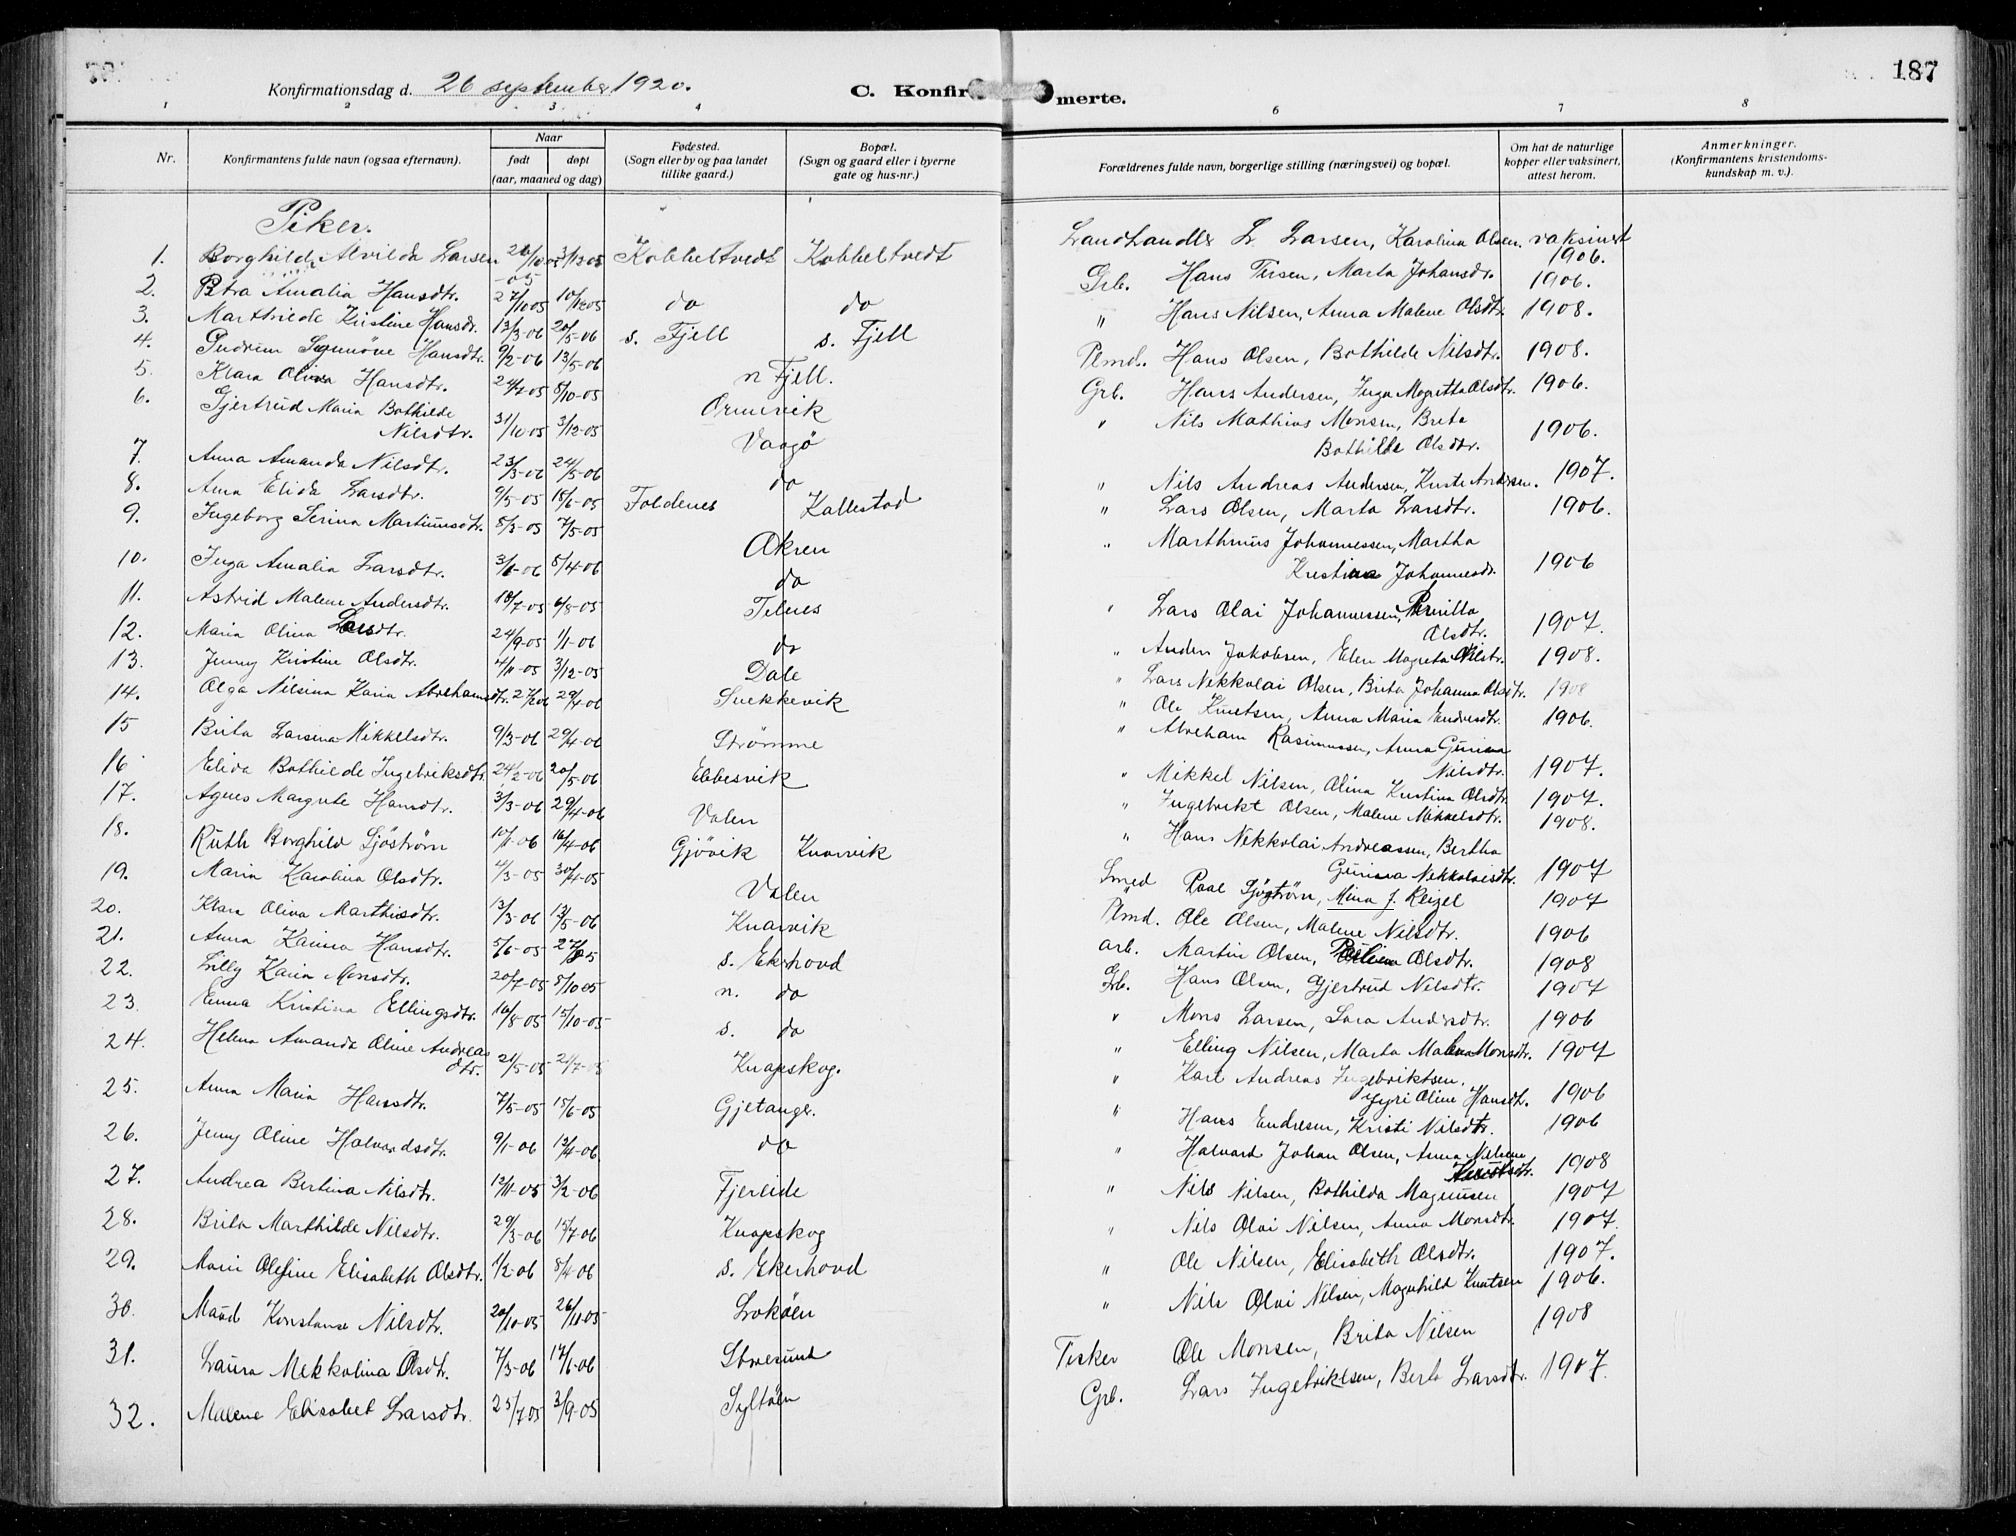 187
Konfirmationsdag d. 26 september 1920.
C. Konfir merte.
1 2 3 4 6 7 8
Nr.
Konfirmantens fulde navn (ogsaa efternavn).
Naar
født døpt
(aar, maaned og dag)
Fødested.
(Sogn eller by og paa landet
tillike gaard.)
Bopæl.
(Sogn og gaard eller i byerne
gate og hus-nr.)
Forældrenes fulde navn, borgerlige stilling (næringsvei) og bopæl.
Om hat de naturlige
kopper eller vaksinert,
attest herom.
Anmerkninger.
(Konfirmantens kristendoms-
kundskap m. v.).
Piker.
1. Borghild Alvilda Larsen 26/10 05 3/12 05 Kobbeltvedt Kobbeltvedt
2. Petra Amalia Hansdtr. 27/10 05 10/12 05 do do
3. Marthilde Kristine Hansdr. 13/3-06 20/5-06 s. Fjell s. Fjell
4. Gudrun Synnöve Hansdtr. 9/2-06 13/5-06 n Fjell.
5. Klara Olina Hansdtr. 24/7-05 8/10-05 Ormvik
6. Gjertrud Maria Bothilde
Nilsdtr. 31/10-05 3/12-05 Vaagö
7. Anna Amanda Nilsdtr. 23/3-06 24/5-06 do
8. Anna Elida Larsdtr. 9/5-05 18/6-05 Foldenes Kallestad
9. Ingeborg Serina Martinusdtr. 8/3-05 7/5-05 Akren
10. Inga Amalia Larsdtr. 3/1-06 8/4-06 do
11. Astrid Malene Andersdtr. 18/7-05 6/8-05 Telnes
12. Maria Olina Larsdtr. 24/9-05 1/1-06 do
13. Jenny Kristine Olsdtr. 4/11-05 3/12-05 Dale
14. Olga Nilsina Karia Abrehamsdtr. 29/4-06 Snekkevik
15 Brita Larsina Mikkelsdtr. 9/3-06 29/4-06 Strømme
16 Elida Bothilde Ingebriksdtr. 24/2-06 20/5-06 Ebbesvik
17. Agnes Margrete Hansdtr. 3/3-06 29/4-06 Valen
18. Ruth Borghild Sjöström 10/1-06 16/4-06 Gjövik Knarvik
19. Maria Karolina Olsdtr. 4/3-05 30/4-05 Valen
20. Klara Oliva Marthinsdtr. 13/3-06 13/5-06 Knarvik
21. Anna Karina Hansdtr. 5/6-05 s. Ekerhovd
22. Lilly Karia Monsdtr. 20/7-05 8/10 05 n. do
23 Emma Kristina Ellingsdtr. 16/8-05 15/10-05 s. do
24. Helena Amanda Oline Andreas
dtr. 21/5-05 Knapskog.
25. Anna Maria Hansdtr. 7/5-05 15/6-05 Gjetanger.
26. Jenny Oline Halvardsdtr. 9/1-06 13/4-06 do
27. Andrea Bertina Nilsdtr. 12/11-05 3/2-06 Fjereide
28. Brita Marthilde Nilsdtr. 29/3-06 15/7-06 Knapskog
29. Marie Olefine Elisabeth Olsdtr. 1/2-06 8/4-06 s. Ekerhovd
30. Maud Konstanse Nilsdtr. 20/10-05 26/11-05 Lokøen
31. Laura Nekkolina Olsdtr. 7/3-06 17/6-06 Straesund
32. Malene Elisabet Larsdtr. 25/7-05 3/9-05 Syltöen
Landhandler L. Larsen, Karolina Olsen. vaksinert
1906.
Grb. Hans Persen, Marta Johansdr. 1906.
" Hans Nilsen, Anna Malene Olsdtr. 1908.
Plmd. Hans Olsen, Bothilde Nilsdtr. 1908.
Grb. Hans Andersen, Inga Magretta Olsdtr. 1906.
" Nils Mathias Monsen, Breta
Bothilde Olsdtr. 1906.
" Nils Andreas Andersen, Andersen. 1907.
" Lars Olsen, Marta Larsdtr. 1906.
" Marthinus Johannessen, Martha
Kristina Johannesdr. 1906
" Lars Olai Johannessen, Pernilla
Olsdtr. 1907.
" Anders Jakobsen, Elen Magreta Nilsdtr. 1908.
" Lars Nekkolai Olsen, Brita Johanna Olsdtr. 1908
" Ole Knutsen, Anna Maria Endresdtr. 1906.
" Abreham Rasmussen, Anna Gurina
Nilsdtr. 1907.
" Mikkel Nilsen, Olina Kristina Olsdtr. 1907.
" Ingebrikt Olsen, Malene Mikkelsdtr. 1908.
" Hans Nekkolai Andreassen, Bertha
Gurina Nekkolaisdtr. 1907
Smed Paal Sjöström, Mina J. Reigel 1907
Plmd. Ole Olsen, Malene Nilsdtr. 1906
arb. Martin Olsen, Olsdtr. 1908
Grb. Hans Olsen, Gjertrud Nilsdtr. 1907
" Mons Larsen, Sara Andersdtr. 1906
" Elling Nilsen, Marta Malena Monsdtr. 1907
" Karl Andreas Ingebriktsen,
Gyri Oline Hansdtr. 1906
" Hans Endresen, Kristi Nilsdtr. 1906
" Halvard Johan Olsen, Anna Nilsine
Knutsdtr. 1908
" Nils Nilsen, Bothilda Magnusen 1907
" Nils Olai Nilsen, Anna Monsdtr. 1907.
" Ole Nilsen, Elisabeth Olsdtr. 1907.
" Nils Olai Nilsen, Magnhild Knutsen 1906.
Fisker Ole Monsen, Brita Nilsen 1908
Grb. Lars Ingebriktsen, Berta Larsdtr. 1907.